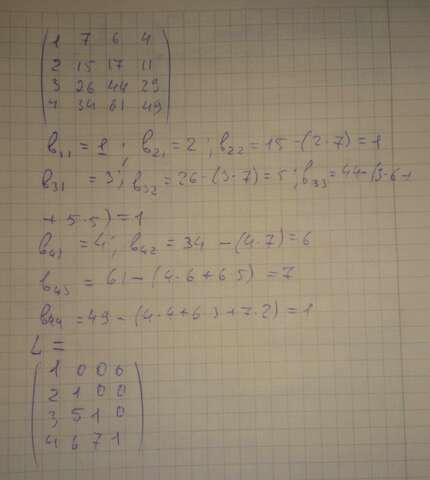 1 7 6 4
2 15 17 11
3 26 44 29
4 34 61 49
b₁₁ = 1 ; b₂₁ = 2 ; b₂₂ = 15 - (2·7) = 1
b₃₁ = 3 ; b₃₂ = 26 - (3·7) = 5 ; b₃₃ = 44 - (3·6 +
+ 5·5) = 1
b₄₁ = 4 ; b₄₂ = 34 - (4·7) = 6
b₄₃ = 61 - (4·6 + 6·5) = 7
b₄₄ = 49 - (4·4 + 6·3 + 7·2) = 1
L =
1 0 0 0
2 1 0 0
3 5 1 0
4 6 7 1